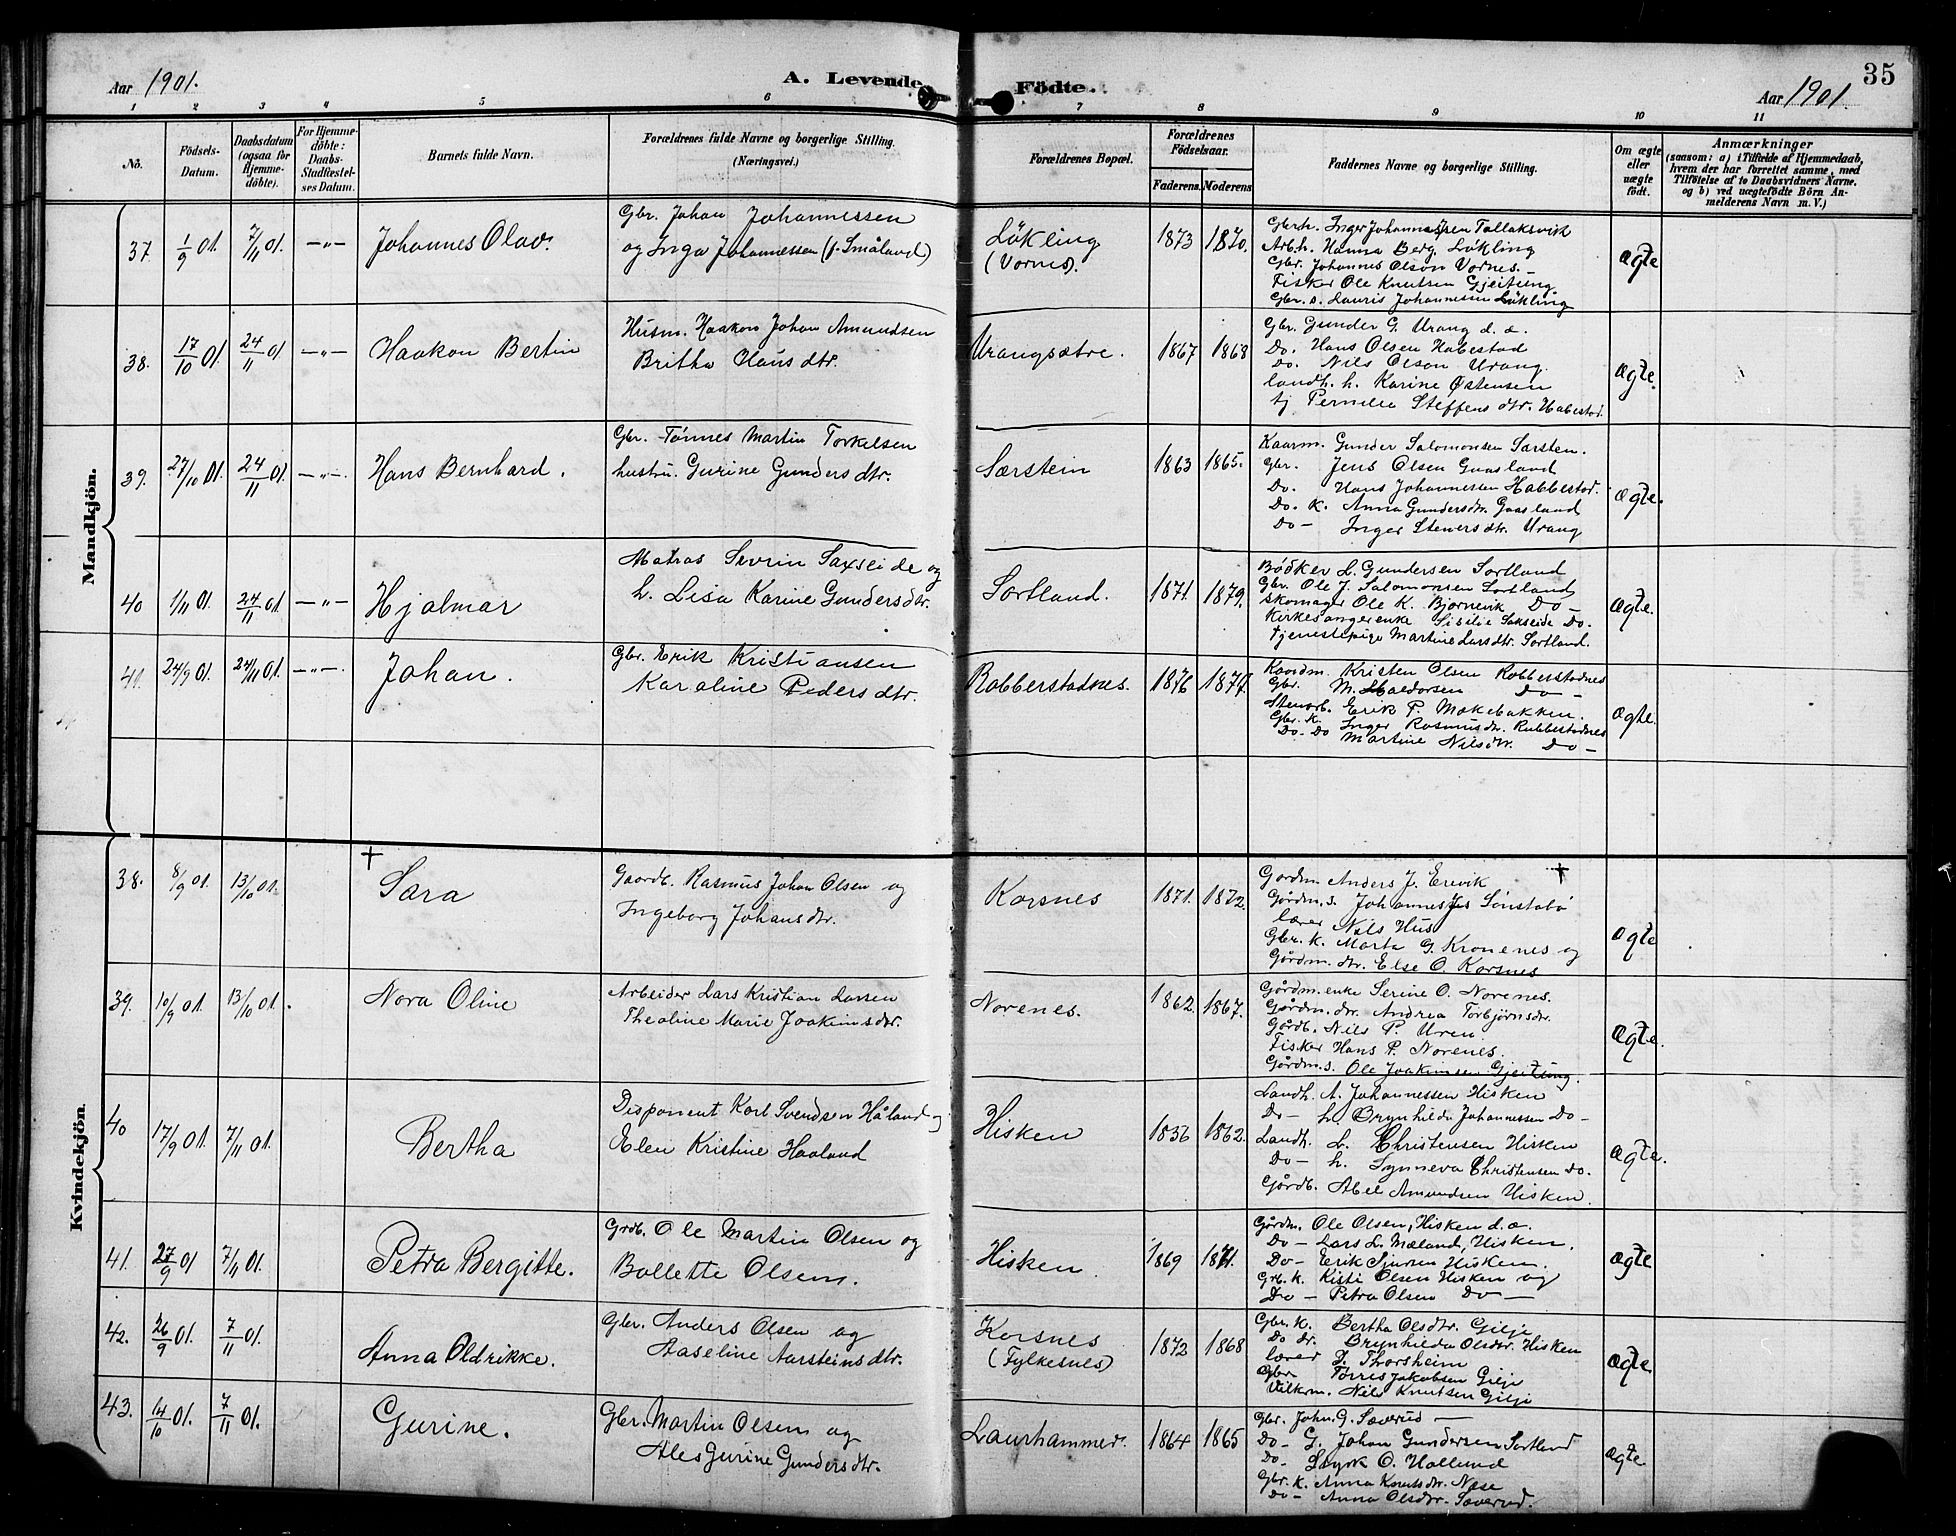 35
Aar 1901.
A. Levende Födte.
Aar 1901.
1 2 3 4 5 6 7 8 9 10 11
No.
Födsels-Datum.
Daabsdatum (ogsaa for Hjemmedöbte).
For Hjemmedöbte: Daabs-Stadfæstelses Datum.
Barnets fulde Navn.
Forældrenes fulde Navne og borgerlige Stilling. (Næringsvei.)
Forældrenes Bopæl.
Forældrenes Födselsaar.
Faderens. Moderens.
Faddernes Navne og borgerlige Stilling.
Om ægte eller uægte födt.
Anmærkninger
(saasom: a) i Tilfælde af Hjemmedaab, hvem der har forrettet samme, med Tilföielse af to Daabsvidners Navne. og b) ved uægtefödte Börn Anmelderens Navn m. V.)
Mandkjön.
37 1/9 01. 7/11 01. —"— Johannes Olav.
Gbr. Johan Johannessen
og Inga Johannessen (f. Småland)
Løkling
(Vornes).
1873 1870.
Gbrh. Inger Johannessen Tallaksvik
Arb.h. Hanna Berg, Løkling
Gbr. Johannes Olson Vornes.
Fisker Ole Knutsen Gjeitung
Gbr. s. Lauris Johannessen Løkling
ægte
38. 17/10 01 24/11 01. —"— Haakon Bertin
Husm. Haakon Johan Amundsen
Britha Olausdtr.
Urangsætre.
1867 1868
Gbr. Gunder G. Urang d. a.
Do. Hans Olsen Habestad
Do. Nils Olson Urang.
landh. h. Karine Østensen
tj Pernille Steffensdtr. Habestad.
ægte.
39. 27/10 01. 24/11 01. —"— Hans Bernhard.
Gbr. Tønnes Martin Torkelsen
hustru. Gurine Gundersdtr.
Særstein
1863 1865.
Kaarm. Gunder Salomonsen Særsten.
Gbr. Jens Olsen Gaasland
Do. Hans Johannessen Habbestad.
Do. K. Anna Gundersdtr. Gaasland
Do — Inger Stenersdtr. Urang
ægte.
40 1/11 01. 24/11 01. —"— Hjalmar
Matros Sevrin Saxseide og
h. Lisa Karine Gundersdtr.
Sortland.
1871. 1879.
Bødker L. Gundersen Sortland
Gbr. Ole J. Salomonsen Sortland
skomager Ole K. Bjørnevik Do —
Kirkesangerenke Sisilie Sakseide Do.
tjenestepige Martine Larsdtr. Sortland.
ægte.
41. 24/9 01. 24/11 01. —"— Johan.
Gbr. Erik Kristiansen
Karoline Pedersdtr.
Robberstadnes.
1876 1877.
Kaardm. Kristen Olsen Robberstadnes
Gbr. M. Haldorsen Do —
Stenarb. Erik P. Møkebakken.
Gbr. K. Inger Rasmusdtr. Rubbestadnes
Do. Do Martine Nilsdtr. Do —
ægte.
Kvindekjön.
38. 8/9 01. 13/10 01. † Sara
Gaardb. Rasmus Johan Olsen og
Ingeborg Johansdtr.
Korsnes
1871. 1872.
Gardm Anders J. Erevik †
Gårdm. s. Johannes Js Sønstabø
lærer Nils Hus
Gbr. K. Marta G. Kronenes og
Gårdm. dtr. Else O. Korsnes
ægte
39. 10/9 01. 13/10 01. Nora Oline
Arbeider Lars Kristian Larsen
Thealine Marie Joakimsdtr.
Norenes.
1862. 1867.
Gårdm. enke Serine O. Norenes.
Gårdm. dtr. Andrea Torbjørnsdtr.
Gårdb. Nils P. Uren.
Fisker Hans P. Norenes.
Gårdm. s. Ole Joakimsen Gjeitung.
ægte.
40 17/9 01. 7/11 01. Bertha
Disponent Karl Svendsen Håland og
Elen Kristine Haaland
Hisken
1856 1862.
Landh. A. Johannessen Hisken
Do — h. Brynhilda Johannessen Do —
Landh. L. Christensen Hisken
Do — h. Synneva Christensen Do.
Gårdb. Abel Amundsen Hisken.
ægte.
41. 27/9 01 7/11 01. Petra Bergitte.
Grdb. Ole Martin Olsen og
Bollette Olsen.
Hisken
1869 1871.
Gårdm. Ole Olsen, Hisken d. a.
Do — Lars L. Mæland, Hisken.
Do — Erik Sjursen Hisken.
Grb. k. Kisti Olsen Hisken og
Do — Petra Olsen Do —
ægte
42. 26/9 01. 7/11 01. Anna Oldrikke.
Gbr. Anders Olsen og
Aaseline Aarsteinsdtr.
Korsnes
(Fylkesnes)
1872 1868
Gbr. K. Bertha Olsdtr. Gilje
Do dr. Brynhilda Olsdtr. Hisken
lærer J. Thorsheim
Gbr Torres Jakobsen Gilje
Vilkm. Nils Knutsen Gilje
ægte
43. 14/10 01. 7/11 01. Gurine.
Gbr. Martin Olsen og
Ales Gurine Gundersdtr.
Laurhammer.
1864 1865
Gbr. John. G. Sæverud —
Do — G. Johan Gundersen Sortland
Do. Styrk O. Hollund
Gbr. K. Anna Knutsdtr. Nese
Do — Anna Olsdtr. Sæverud.
ægte.